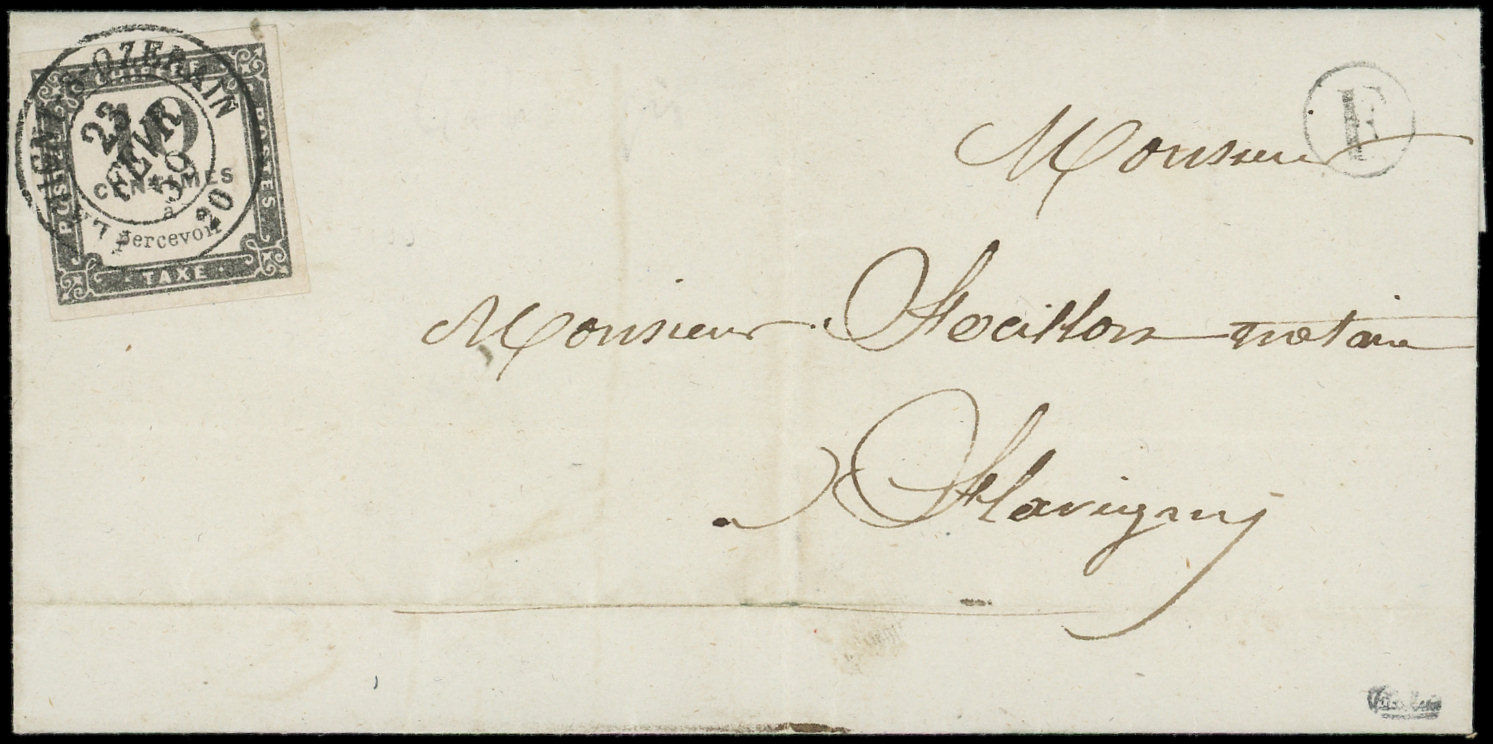 FLAVIGNY-S-OZERAIN
23
FEVR
59
20
CHIFFRE
POSTES
10
CENTIMES
à
percevoir
TAXE
F
Monsieur
Monsieur notaire
a Flavigny